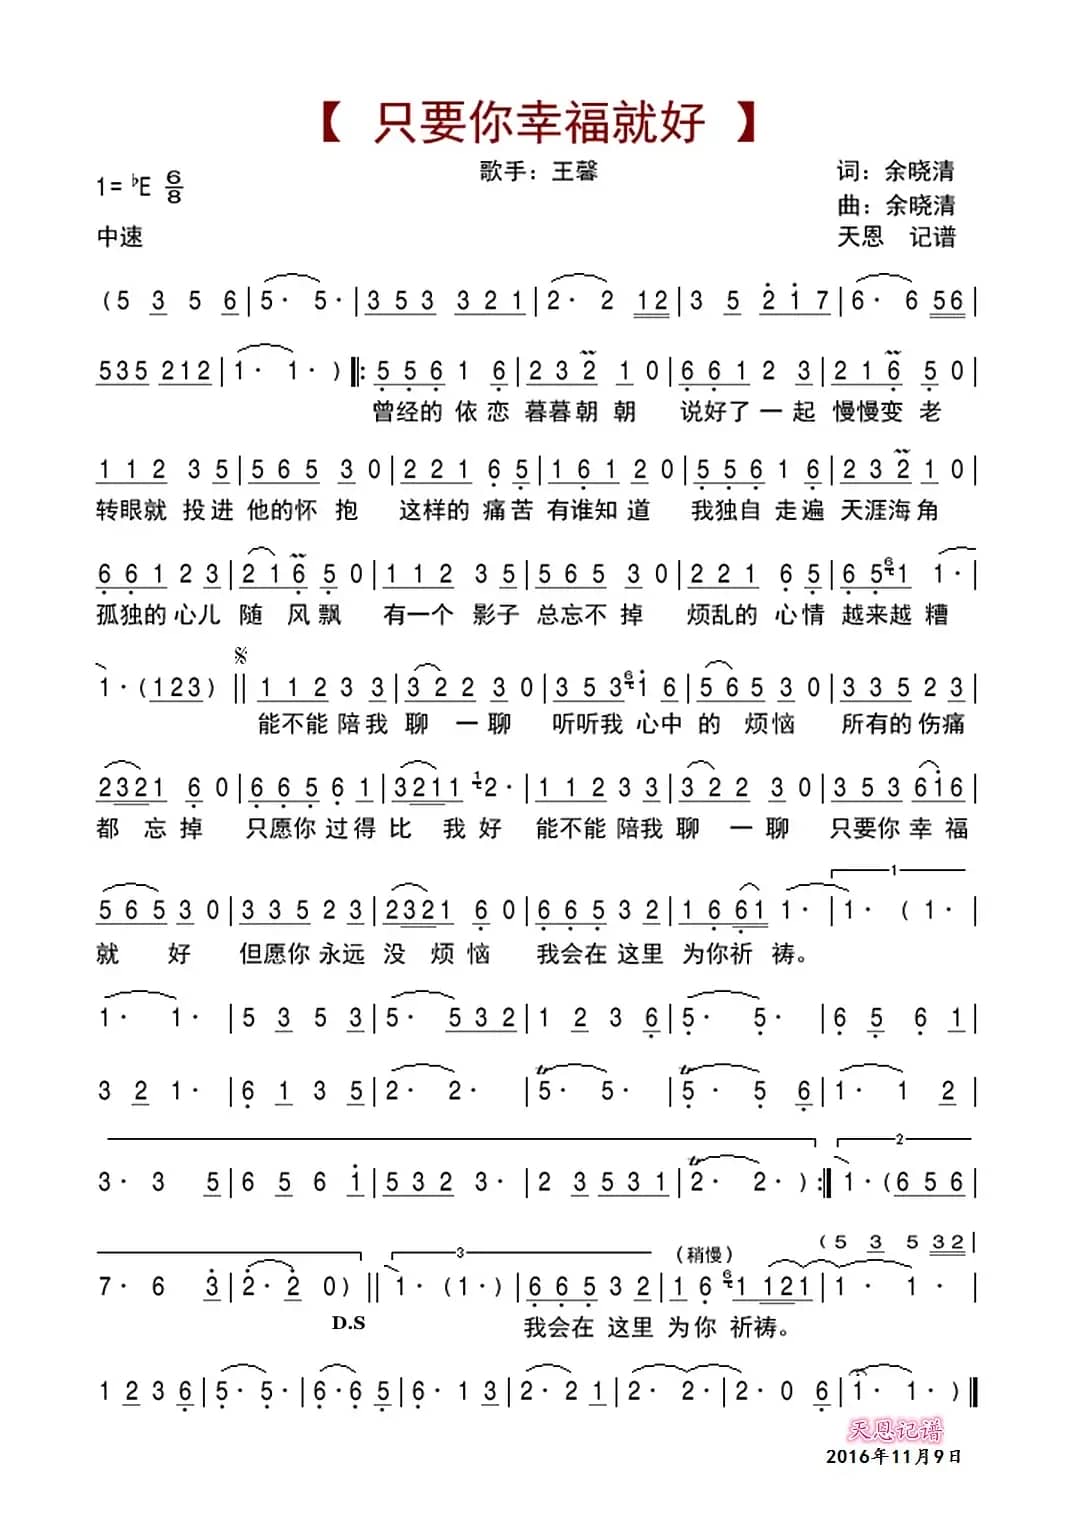 【 只要你幸福就好 】
歌手：王馨
词：余晓清
1= ♭E 6/8
曲：余晓清
中速
天恩 记谱
(5 3 5 6 | 5· 5· | 3 5 3 3 2 1 | 2· 2 12 | 3 5 2 1 7 | 6· 6 56 |
535 212 | 1· 1· ) ‖: 5 5 6 1 6 | 2 3 2 1 0 | 6 6 1 2 3 | 2 1 6 5 0 |
曾经的 依恋 暮暮朝 朝 说好了 一起 慢慢变 老
1 1 2 3 5 | 5 6 5 3 0 | 2 2 1 6 5 | 1 6 1 2 0 | 5 5 6 1 6 | 2 3 2 1 0 |
转眼就 投进 他的怀 抱 这样的 痛苦 有谁知 道 我独自 走遍 天涯海 角
6 6 1 2 3 | 2 1 6 5 0 | 1 1 2 3 5 | 5 6 5 3 0 | 2 2 1 6 5 | 6 5 6 1 1·
孤独的 心儿 随 风 飘 有一个 影子 总忘不 掉 烦乱的 心情 越来越 糟
1· (1 2 3) ‖ 𝄋 1 1 2 3 3 | 3 2 2 3 0 | 3 5 3 6 1 6 | 5 6 5 3 0 | 3 3 5 2 3 |
能不能 陪我 聊 一 聊 听听我 心中 的 烦恼 所有的 伤痛
2321 6 0 | 6 6 5 6 1 | 3211 1 2· | 1 1 2 3 3 | 3 2 2 3 0 | 3 5 3 6 1 6 |
都 忘 掉 只愿你 过得 比 我 好 能不能 陪我 聊 一 聊 只要你 幸 福
1
5 6 5 3 0 | 3 3 5 2 3 | 2321 6 0 | 6 6 5 3 2 | 1 6 61 1· | 1· ( 1· |
就 好 但愿你 永远 没 烦 恼 我会在 这里 为你祈 祷。
1· 1· | 5 3 5 3 | 5· 5 3 2 | 1 2 3 6 | 5· 5· | 6 5 6 1 |
3 2 1· | 6 1 3 5 | 2· 2· | tr 5· 5· | tr 5· 5 6 | 1· 1 2 |
2
3· 3 5 | 6 5 6 1 | 5 3 2 3· | 2 3 5 3 1 | tr 2· 2· ) :‖ 1· (6 5 6 |
(5 3 5 32 |
3
(稍慢)
7· 6 3 | 2· 2 0) ‖ 1· (1·) | 6 6 5 3 2 | 1 6 6 1 121 | 1· 1· |
D.S
我会在 这里 为你 祈祷。
1 2 3 6 | 5· 5· | 6· 6 5 | 6· 1 3 | 2· 2 1 | 2· 2· | 2· 0 6 | 1· 1· ) ‖
天恩记谱
2016年11月9日